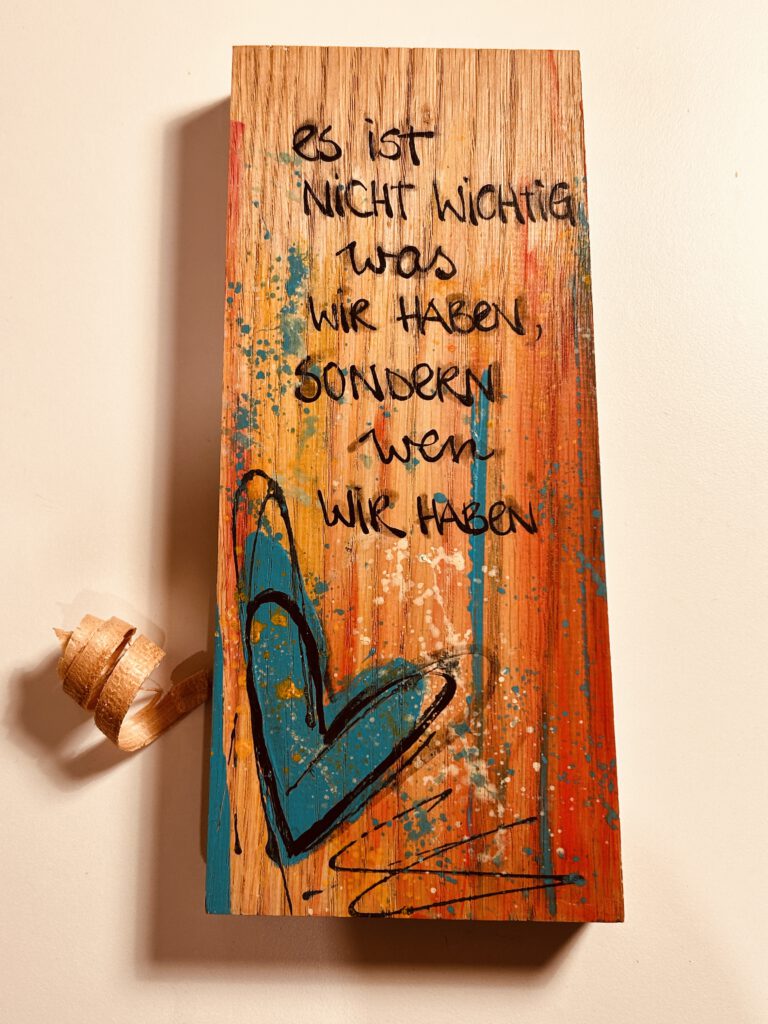 es ist
NiCHT WiCHTiG
was
WiR HABEN,
SONDERN
wen
WiR HABEN